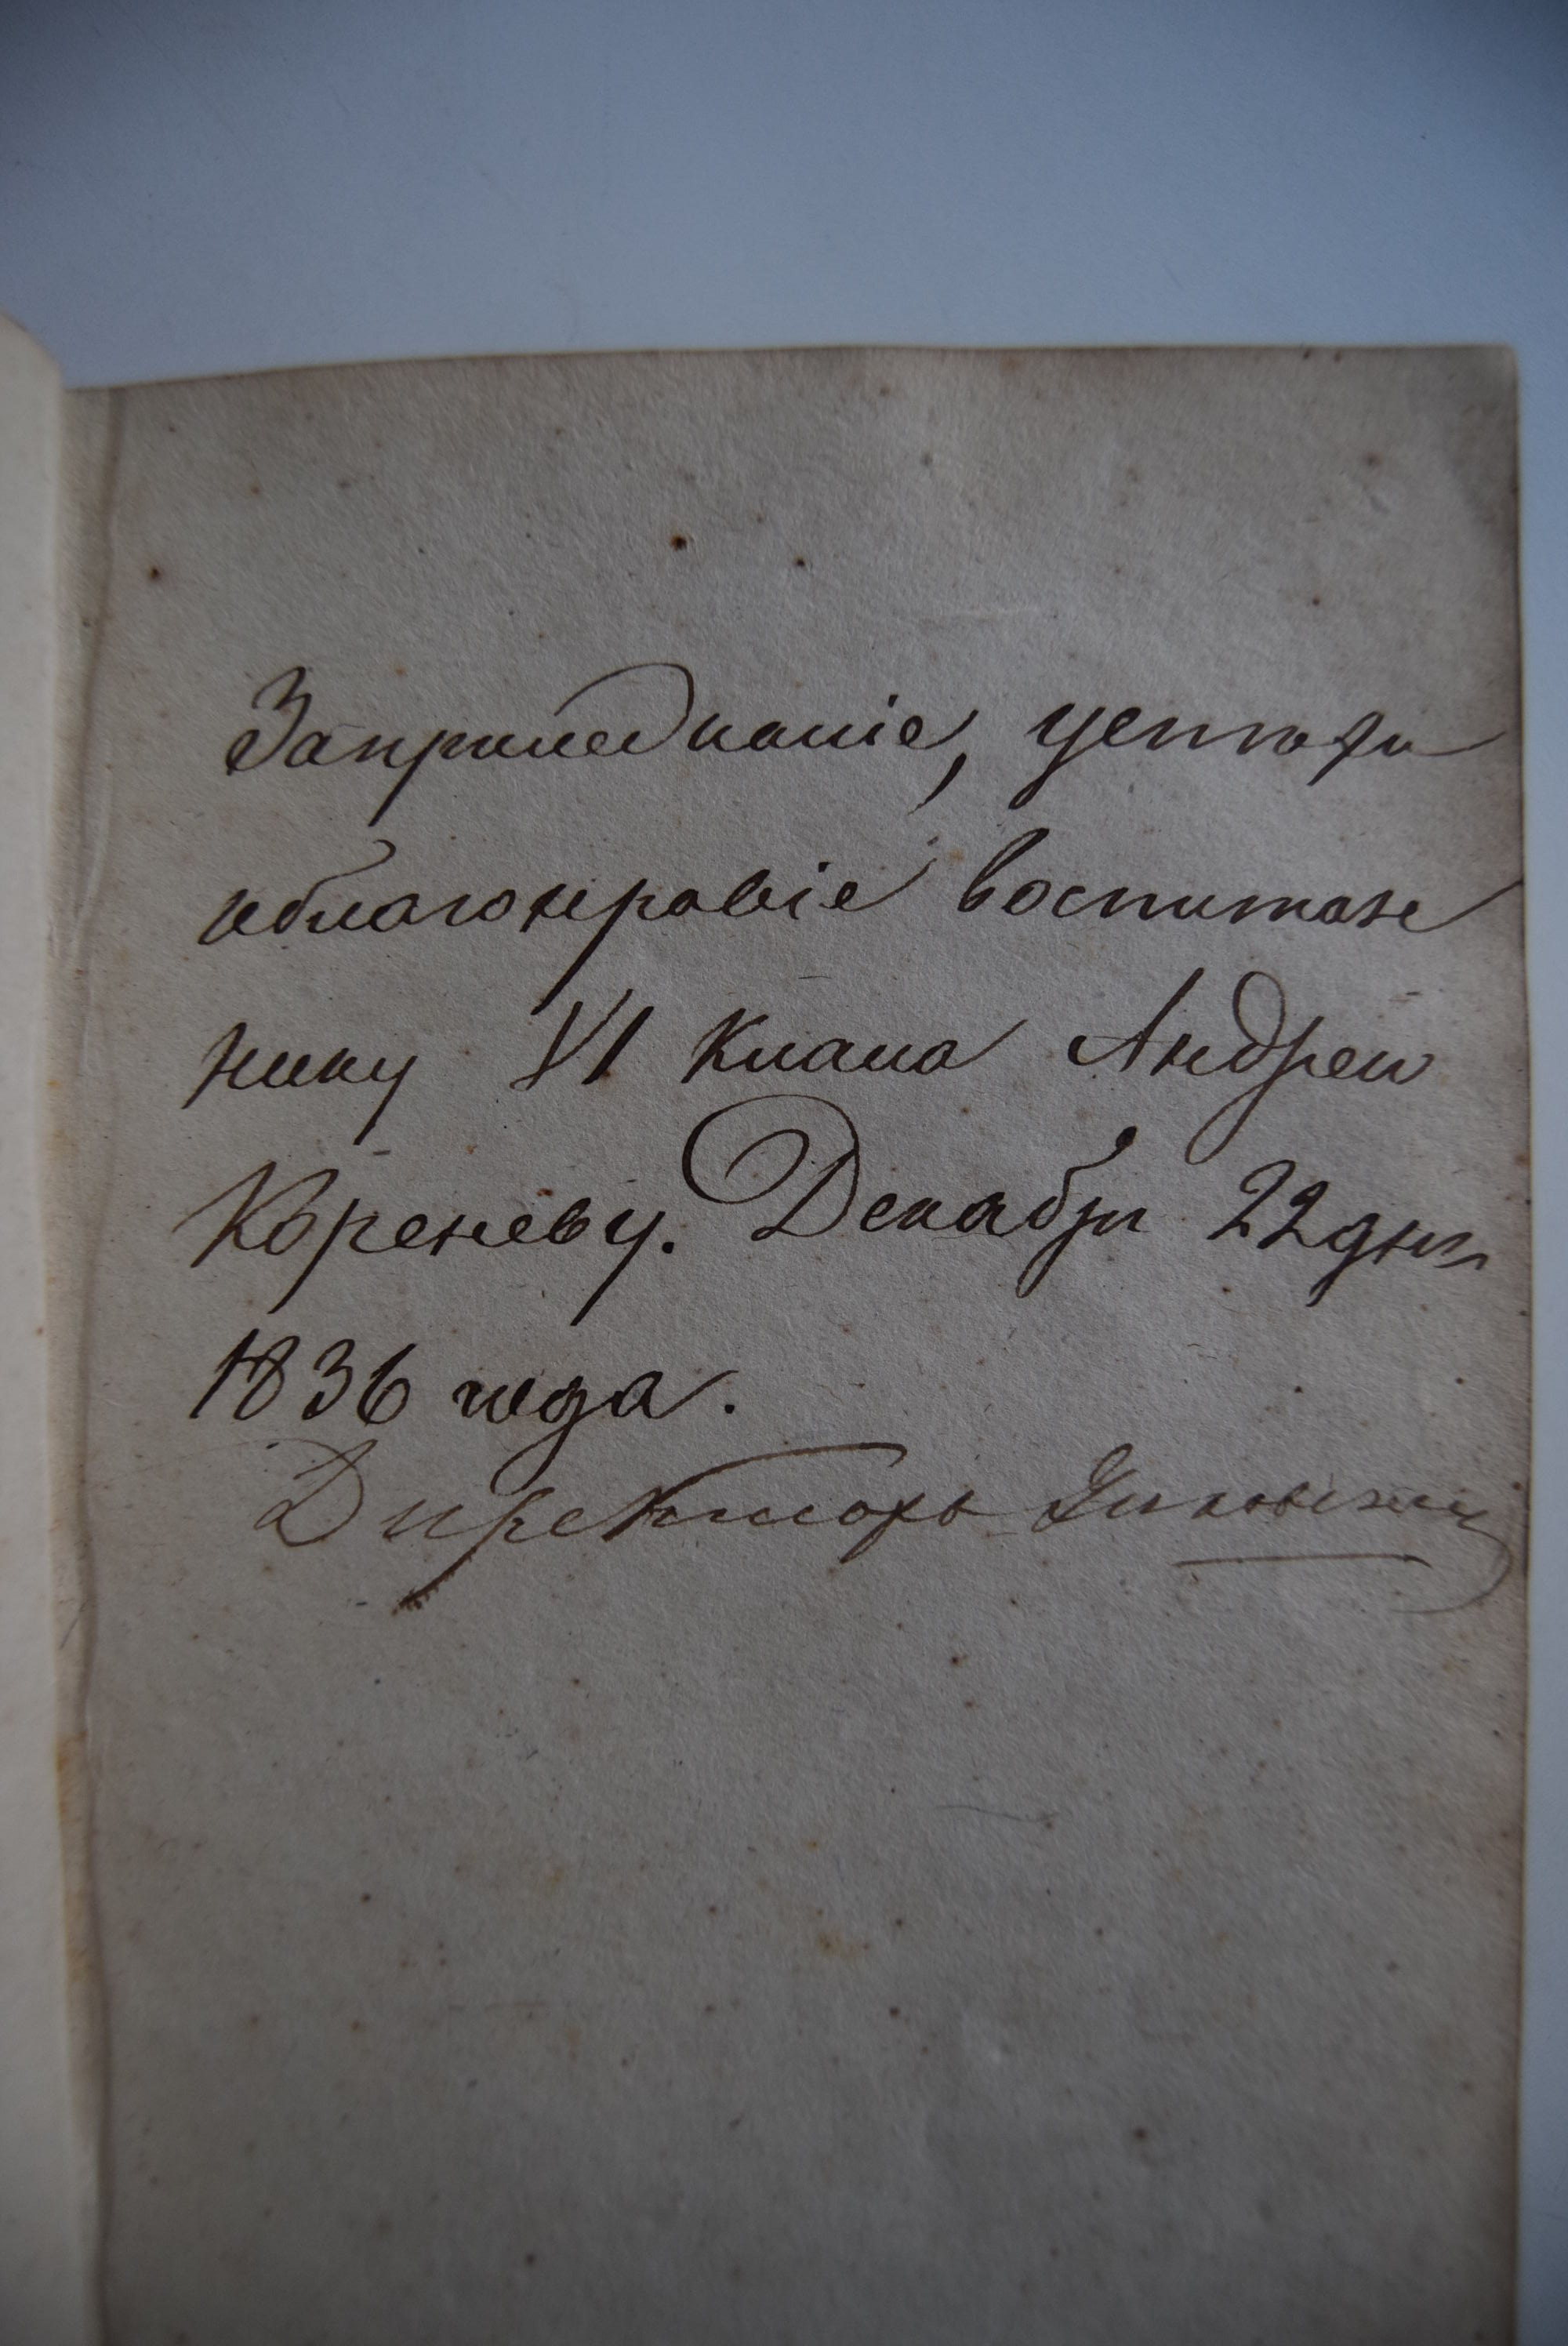 За прилежаніе, успехи
и благонравіе воспитан
нику VI класса Андрею
Кореневу. Декабря 22 дня
1836 года.
Директоръ